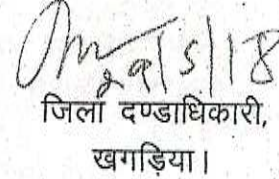 29/5/18
जिला दण्डाधिकारी,
खगड़िया।